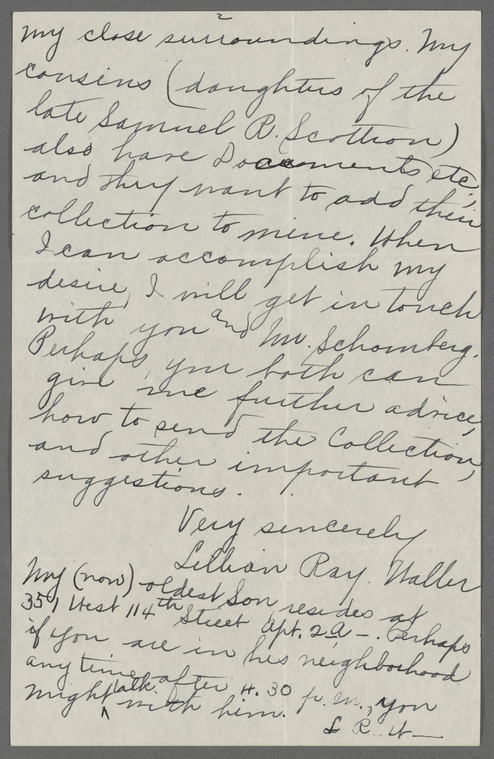 2
my close surroundings. My
cousins (daughters of the
late Samuel R. Scottron)
also have Documents, etc;
and they want to add their
collection to mine. When
I can accomplish my
desire, I will get in touch
with you and Mr. Schomberg.
Perhaps, you both can
give me further advice,
how to send the Collection,
and other important
suggestions.
Very sincerely
Lillian Ray. Waller
My (now) oldest Son resides at
351 West 114th Street Apt. 2a —. Perhaps
if you are in his neighborhood
anytime after 4.30 p.m., you
might talk with him.
L R. W—